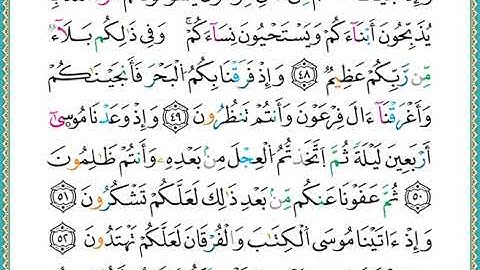 يُذَبِّحُونَ أَبْنَآءَكُمْ وَيَسْتَحْيُونَ نِسَآءَكُمْ ۚ وَفِى ذَٰلِكُم بَلَآءٌ
مِّن رَّبِّكُمْ عَظِيمٌ ٤٨ وَإِذْ فَرَقْنَا بِكُمُ الْبَحْرَ فَأَنجَيْنَٰكُمْ
وَأَغْرَقْنَآ ءَالَ فِرْعَوْنَ وَأَنتُمْ تَنظُرُونَ ٤٩ وَإِذْ وَعَدْنَا مُوسَىٰٓ
أَرْبَعِينَ لَيْلَةً ثُمَّ اتَّخَذتُّمُ الْعِجْلَ مِنۢ بَعْدِهِۦ وَأَنتُمْ ظَٰلِمُونَ
٥٠ ثُمَّ عَفَوْنَا عَنكُم مِّنۢ بَعْدِ ذَٰلِكَ لَعَلَّكُمْ تَشْكُرُونَ ٥١
وَإِذْ ءَاتَيْنَا مُوسَى الْكِتَٰبَ وَالْفُرْقَانَ لَعَلَّكُمْ تَهْتَدُونَ ٥٢